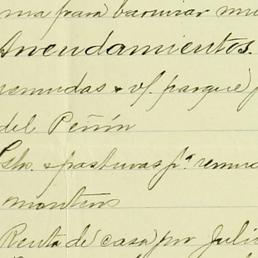 ma para barnizar
Arrendamientos.
remudas & vf. parque
del Peñón
Gtos. & pasturas pa. remuda
monteros
Renta de casa por Julio